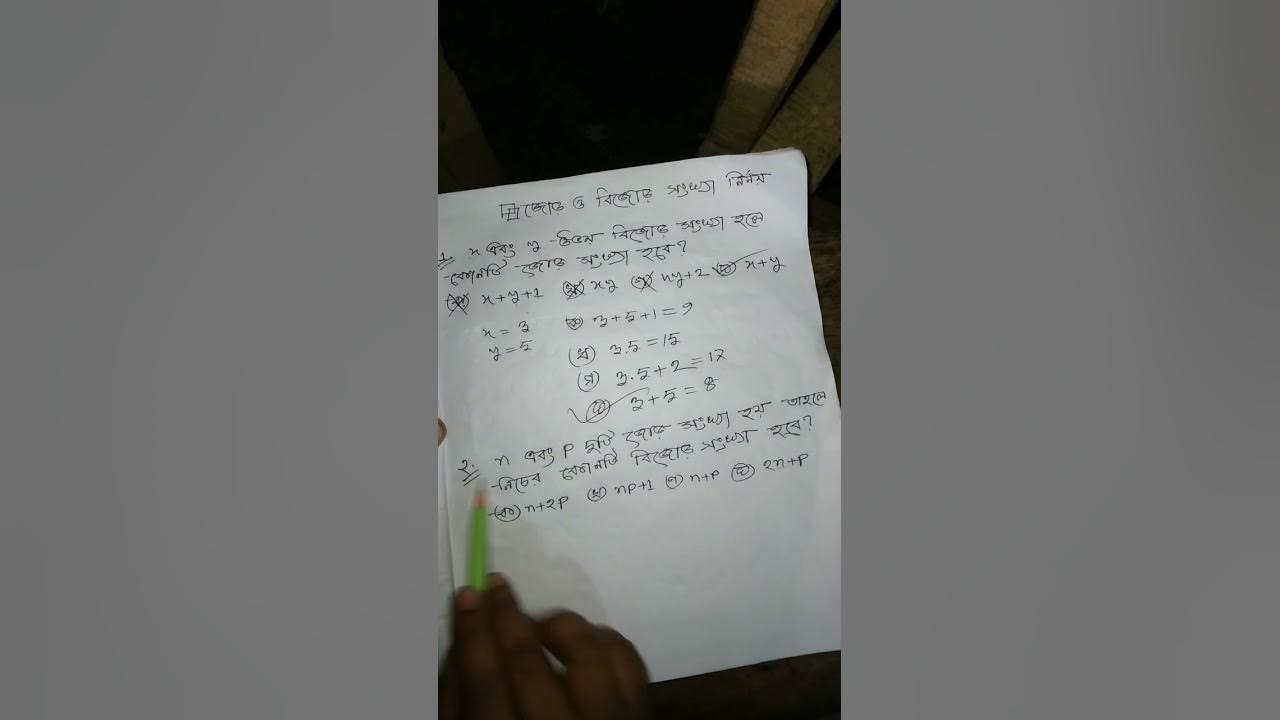 জোড় ও বিজোড় সংখ্যা নির্নয়
1. x এবং y উভয় বিজোড় সংখ্যা হলে
কোনটি জোড় সংখ্যা হবে?
(ক) x+y+1 (খ) xy (গ) xy+2 (ঘ) x+y
x = 3 (ক) 3+5+1=9
y = 5 (খ) 3.5=15
(গ) 3.5+2=17
(ঘ) 3+5=8
২. n এবং P দুটি জোড় সংখ্যা হয় তাহলে
নিচের কোনটি বিজোড় সংখ্যা হবে?
(ক) n+2P (খ) nP+1 (গ) n+P (ঘ) 2n+P